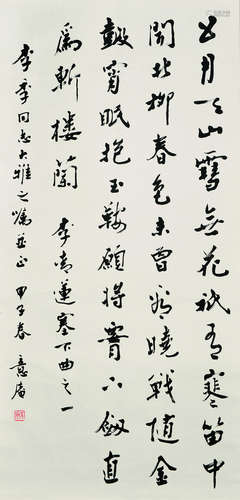 五月天山雪無花祇有寒笛中
聞折柳春色未曾看曉戰隨金
鼓宵眠抱玉鞍願將腰下劍直
爲斬樓蘭 李青蓮塞下曲之一
李季同志大雅之嘱並正 甲子春 意庵